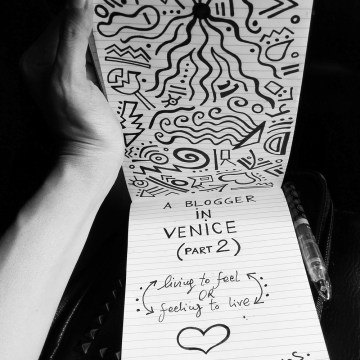 A BLOGGER
iN
VENiCE
(PART 2)
living to feel
OR
feeling to live